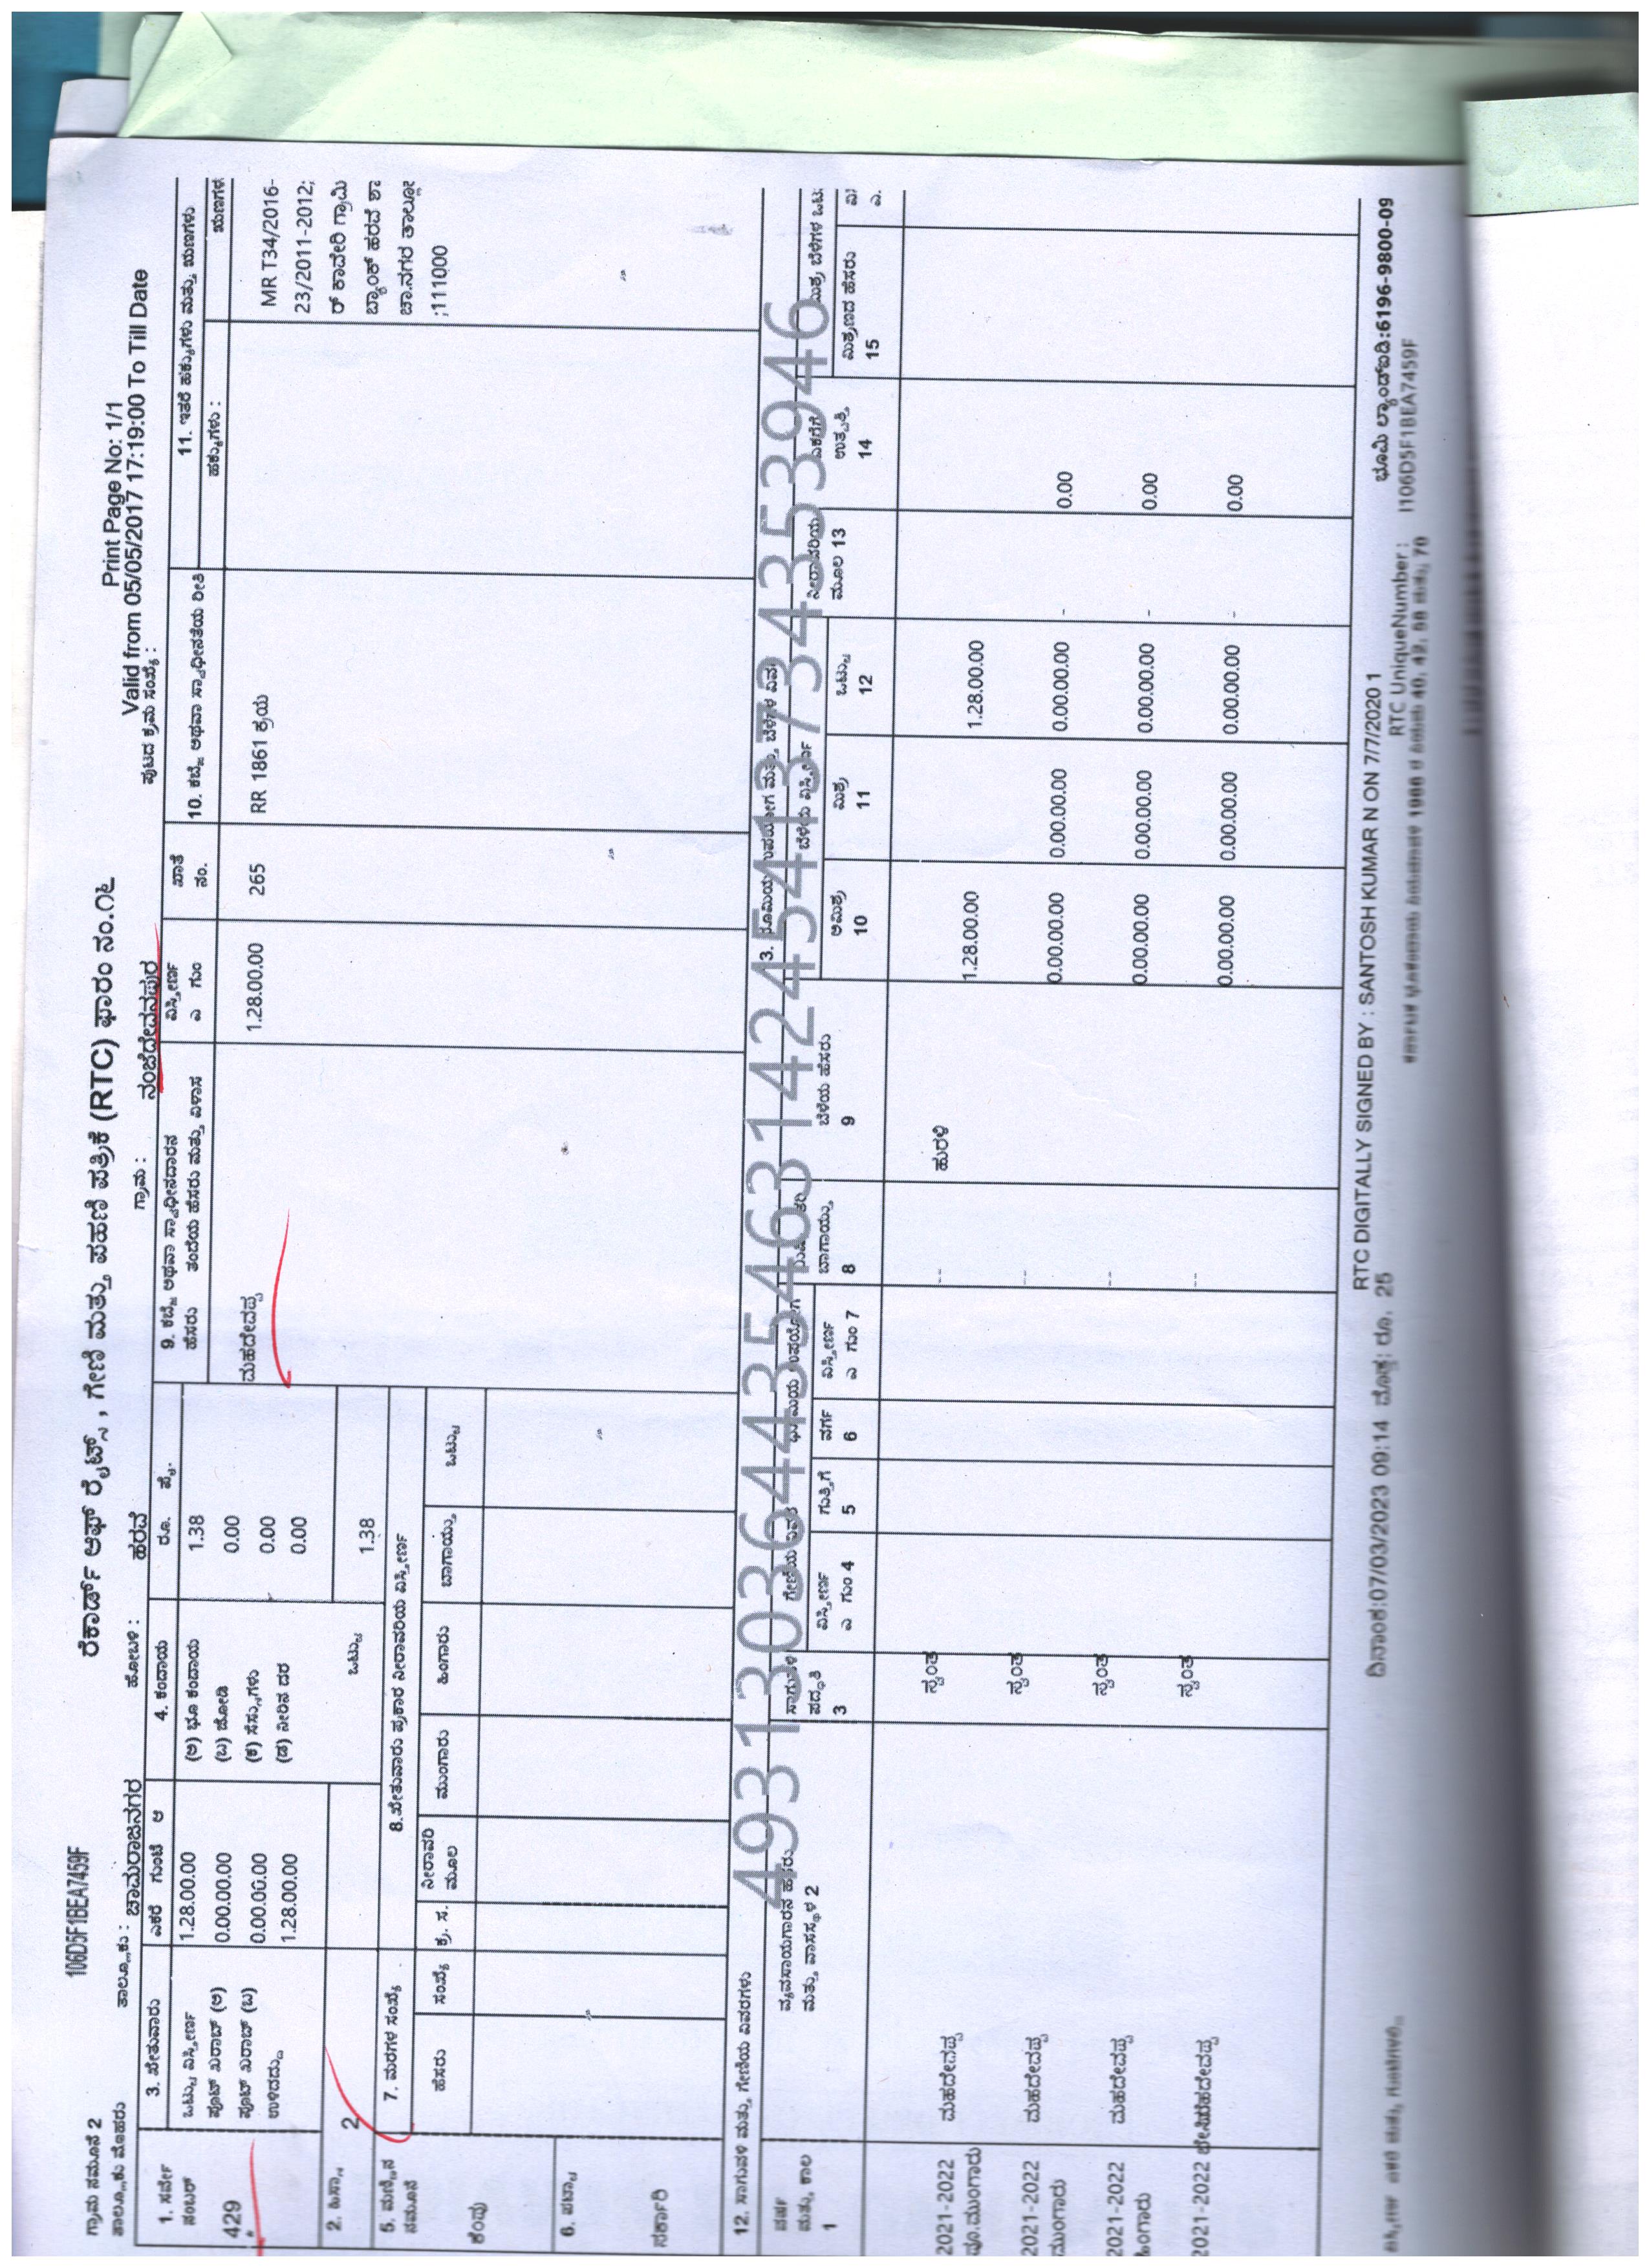 106D5F1BEA7459F
Print Page No: 1/1
ಗ್ರಾಮ ನಮೂನೆ 2
ರೆಕಾರ್ಡ್ ಆಫ್ ರೈಟ್ಸ್, ಗೇಣಿ ಮತ್ತು ಪಹಣಿ ಪತ್ರಿಕೆ (RTC) ಫಾರಂ ನಂ.೧೬
Valid from 05/05/2017 17:19:00 To Till Date
ತಾಲ್ಲೂಕು ಮೊಹರು ತಾಲ್ಲೂಕು : ಚಾಮರಾಜನಗರ ಹೋಬಳಿ : ಹರವೆ ಗ್ರಾಮ : ನಂಜೆದೇವನಪುರ ಪುಟದ ಕ್ರಮ ಸಂಖ್ಯೆ :
1. ಸರ್ವೇ ನಂಬರ್
429
3. ಖೇತುವಾರು ಎಕರೆ ಗುಂಟೆ ಆ
ಒಟ್ಟು ವಿಸ್ತೀರ್ಣ 1.28.00.00
ಪೂಟ್ ಖರಾಬ್ (ಅ) 0.00.00.00
ಪೂಟ್ ಖರಾಬ್ (ಬ) 0.00.00.00
ಉಳಿದದ್ದು 1.28.00.00
4. ಕಂದಾಯ ರೂ. ಪೈ.
(ಅ) ಭೂ ಕಂದಾಯ 1.38
(ಬ) ಜೋಡಿ 0.00
(ಕ) ಸೆಸ್ಸುಗಳು 0.00
(ಡ) ನೀರಿನ ದರ 0.00
ಒಟ್ಟು 1.38
2. ಹಿಸ್ಸಾ 2
9. ಕಬ್ಜೆ ಅಥವಾ ಸ್ವಾಧೀನದಾರನ
ಹೆಸರು ತಂದೆಯ ಹೆಸರು ಮತ್ತು ವಿಳಾಸ
ವಿಸ್ತೀರ್ಣ
ಎ ಗುಂ
ಖಾತೆ
ನಂ.
10. ಕಬ್ಜೆ ಅಥವಾ ಸ್ವಾಧೀನತೆಯ ರೀತಿ
11. ಇತರೆ ಹಕ್ಕುಗಳು ಮತ್ತು ಋಣಗಳು
ಹಕ್ಕುಗಳು : ಋಣಗಳು
ಮಹದೇವಪ್ಪ 1.28.00.00 265 RR 1861 ಕ್ರಯ
MR T34/2016-
23/2011-2012;
ರ್ ಕಾವೇರಿ ಗ್ರಾಮಿ
ಬ್ಯಾಂಕ್ ಹರವೆ ಶಾ
ಚಾ.ನಗರ ತಾಲ್ಲೋ
;111000
5. ಮಣ್ಣಿನ ನಮೂನೆ
ಕೆಂಪು
6. ಪಟ್ಟಾ
ಸರ್ಕಾರಿ
7. ಮರಗಳ ಸಂಖ್ಯೆ
ಹೆಸರು ಸಂಖ್ಯೆ
8.ಖೇತುವಾರು ಪ್ರಕಾರ ನೀರಾವರಿಯ ವಿಸ್ತೀರ್ಣ
ಕ್ರ. ಸ. ನೀರಾವರಿ ಮೂಲ ಮುಂಗಾರು ಹಿಂಗಾರು ಬಾಗಾಯ್ತು ಒಟ್ಟು
12. ಸಾಗುವಳಿ ಮತ್ತು ಗೇಣಿಯ ವಿವರಗಳು
49313036443546314245413734353946
ವರ್ಷ ಮತ್ತು ಕಾಲ 1
ವ್ಯವಸಾಯಗಾರನ ಹೆಸರು ಮತ್ತು ವಾಸಸ್ಥಳ 2
ಸಾಗುವಳಿ ಪದ್ಧತಿ 3
ವಿಸ್ತೀರ್ಣ ಎ ಗುಂ 4
ಗುತ್ತಿಗೆ 5
ವರ್ಗ 6
ವಿಸ್ತೀರ್ಣ ಎ ಗುಂ 7
ಬಾಗಾಯ್ತು 8
ಬೆಳೆಯ ಹೆಸರು 9
ಬೆಳೆಯ ವಿಸ್ತೀರ್ಣ
ಅಮಿಶ್ರ 10
ಮಿಶ್ರ 11
ಒಟ್ಟು 12
ನೀರಾವರಿಯ ಮೂಲ 13
ಎಕರೆಗೆ ಉತ್ಪತ್ತಿ 14
ಮಿಶ್ರ ಬೆಳೆಗಳ ಒಟ್ಟು
ಮಿಶ್ರಣದ ಹೆಸರು 15
2021-2022 ಪೂ.ಮುಂಗಾರು ಮಹದೇವಪ್ಪ ಸ್ವಂತ -- ಹುರಳಿ 1.28.00.00 1.28.00.00
2021-2022 ಮುಂಗಾರು ಮಹದೇವಪ್ಪ ಸ್ವಂತ -- 0.00.00.00 0.00.00.00 0.00.00.00 - 0.00
2021-2022 ಹಿಂಗಾರು ಮಹದೇವಪ್ಪ ಸ್ವಂತ -- 0.00.00.00 0.00.00.00 0.00.00.00 - 0.00
2021-2022 ಬೇಸಿಗೆ ಮಹದೇವಪ್ಪ ಸ್ವಂತ -- 0.00.00.00 0.00.00.00 0.00.00.00 - 0.00
RTC DIGITALLY SIGNED BY : SANTOSH KUMAR N ON 7/7/2020 1
ಭೂಮಿ ಲ್ಯಾಂಡ್ಐಡಿ:6196-9800-09
ದಿನಾಂಕ:07/03/2023 09:14 ಮೊತ್ತ: ರೂ. 25
RTC UniqueNumber : I106D5F1BEA7459F